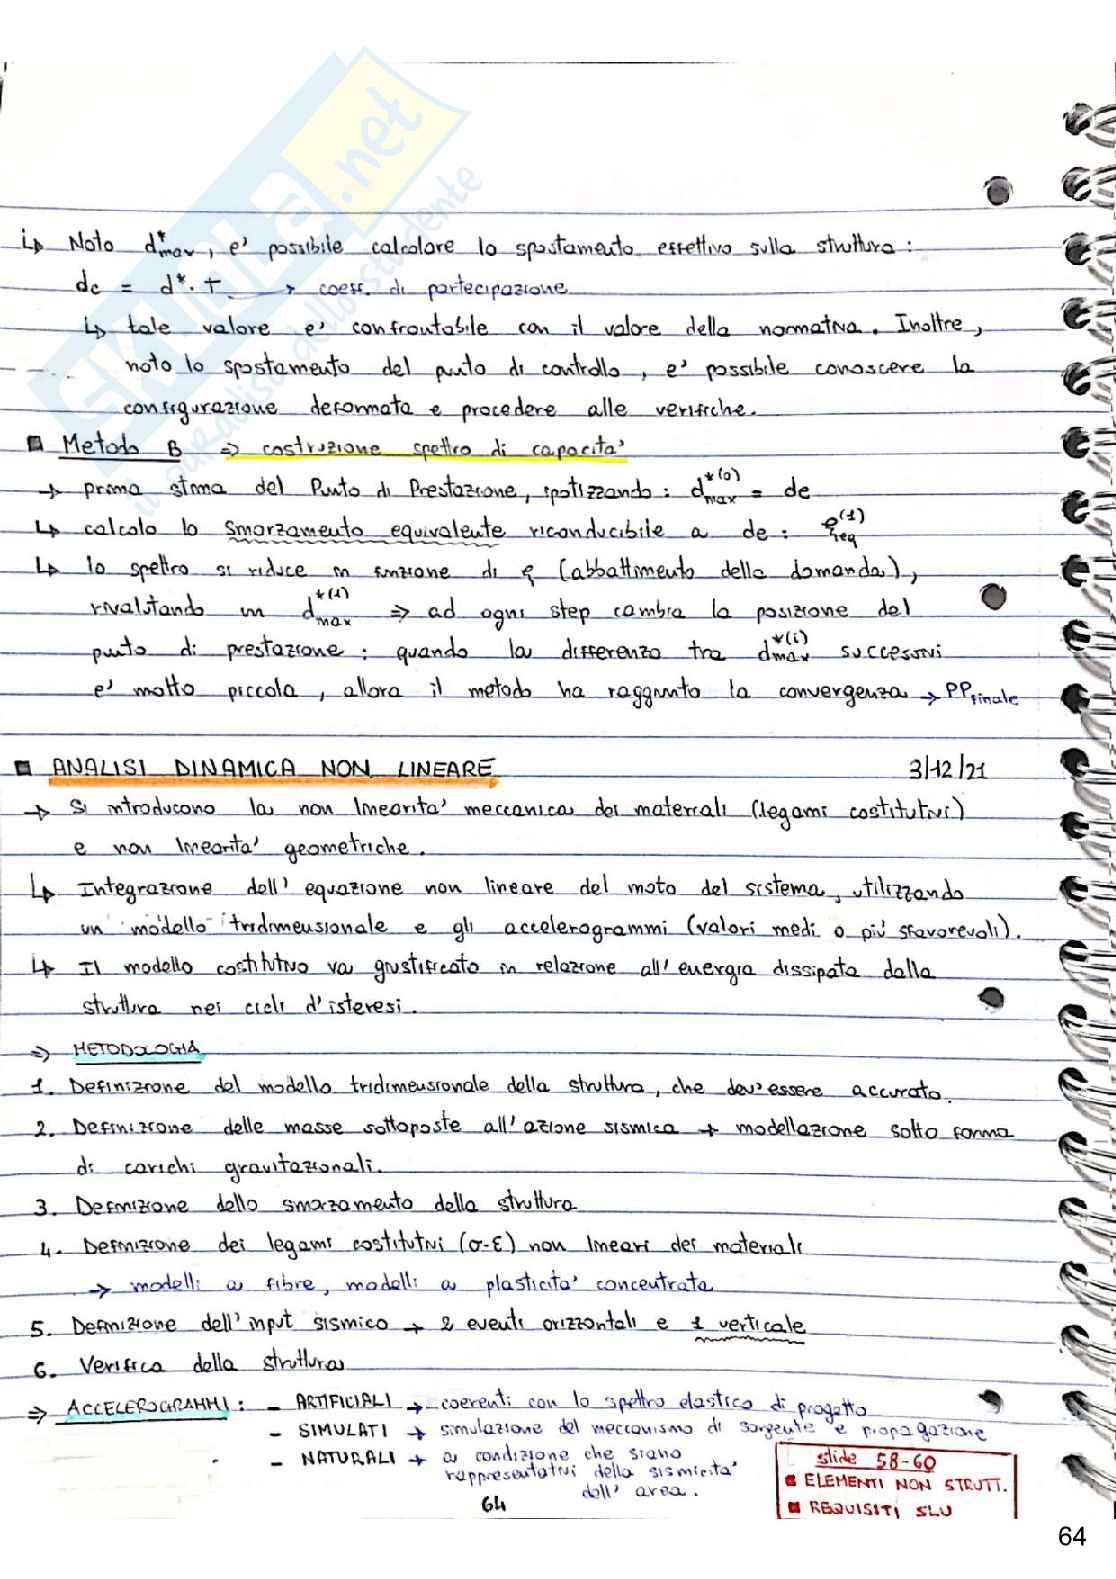 SKUOLA.net
il paradiso dello studente
↳ Noto d*max, e' possibile calcolare lo spostamento effettivo sulla struttura:
dc = d*· Γ → coeff. di partecipazione
↳ tale valore e' confrontabile con il valore della normativa. Inoltre,
noto lo spostamento del punto di controllo, e' possibile conoscere la
configurazione deformata e procedere alle verifiche.
■ Metodo B ⇒ costruzione spettro di capacita'
→ prima stima del Punto di Prestazione, ipotizzando: d*(0)max = de
↳ calcolo lo smorzamento equivalente riconducibile a de: ξ(1)eq
↳ lo spettro si riduce in funzione di ξ (abbattimento della domanda),
rivalutando un d*(1)max ⇒ ad ogni step cambia la posizione del
punto di prestazione: quando la differenza tra d*(i)max successivi
e' molto piccola, allora il metodo ha raggiunto la convergenza → PPfinale
■ ANALISI DINAMICA NON LINEARE 3/12/21
→ Si introducono la non linearita' meccanica dei materiali (legami costitutivi)
e non linearita' geometriche.
↳ Integrazione dell' equazione non lineare del moto del sistema, utilizzando
un modello tridimensionale e gli accelerogrammi (valori medi o più sfavorevoli).
↳ Il modello costitutivo va giustificato in relazione all' energia dissipata dalla
struttura nei cicli d'isteresi.
⇒ METODOLOGIA
1. Definizione del modello tridimensionale della struttura, che dev'essere accurato.
2. Definizione delle masse sottoposte all' azione sismica → modellazione sotto forma
di carichi gravitazionali.
3. Definizione dello smorzamento della struttura
4. Definizione dei legami costitutivi (σ-ε) non lineari dei materiali
→ modelli a fibre, modelli a plasticita' concentrata
5. Definizione dell' input sismico → 2 eventi orizzontali e 1 verticale
6. Verifica della struttura
⇒ ACCELEROGRAMMI: - ARTIFICIALI → coerenti con lo spettro elastico di progetto
- SIMULATI → simulazione del meccanismo di sorgente e propagazione
- NATURALI → a condizione che siano
rappresentativi della sismicita'
dell' area.
slide 58-60
■ ELEMENTI NON STRUTT.
■ REQUISITI SLU
64
64